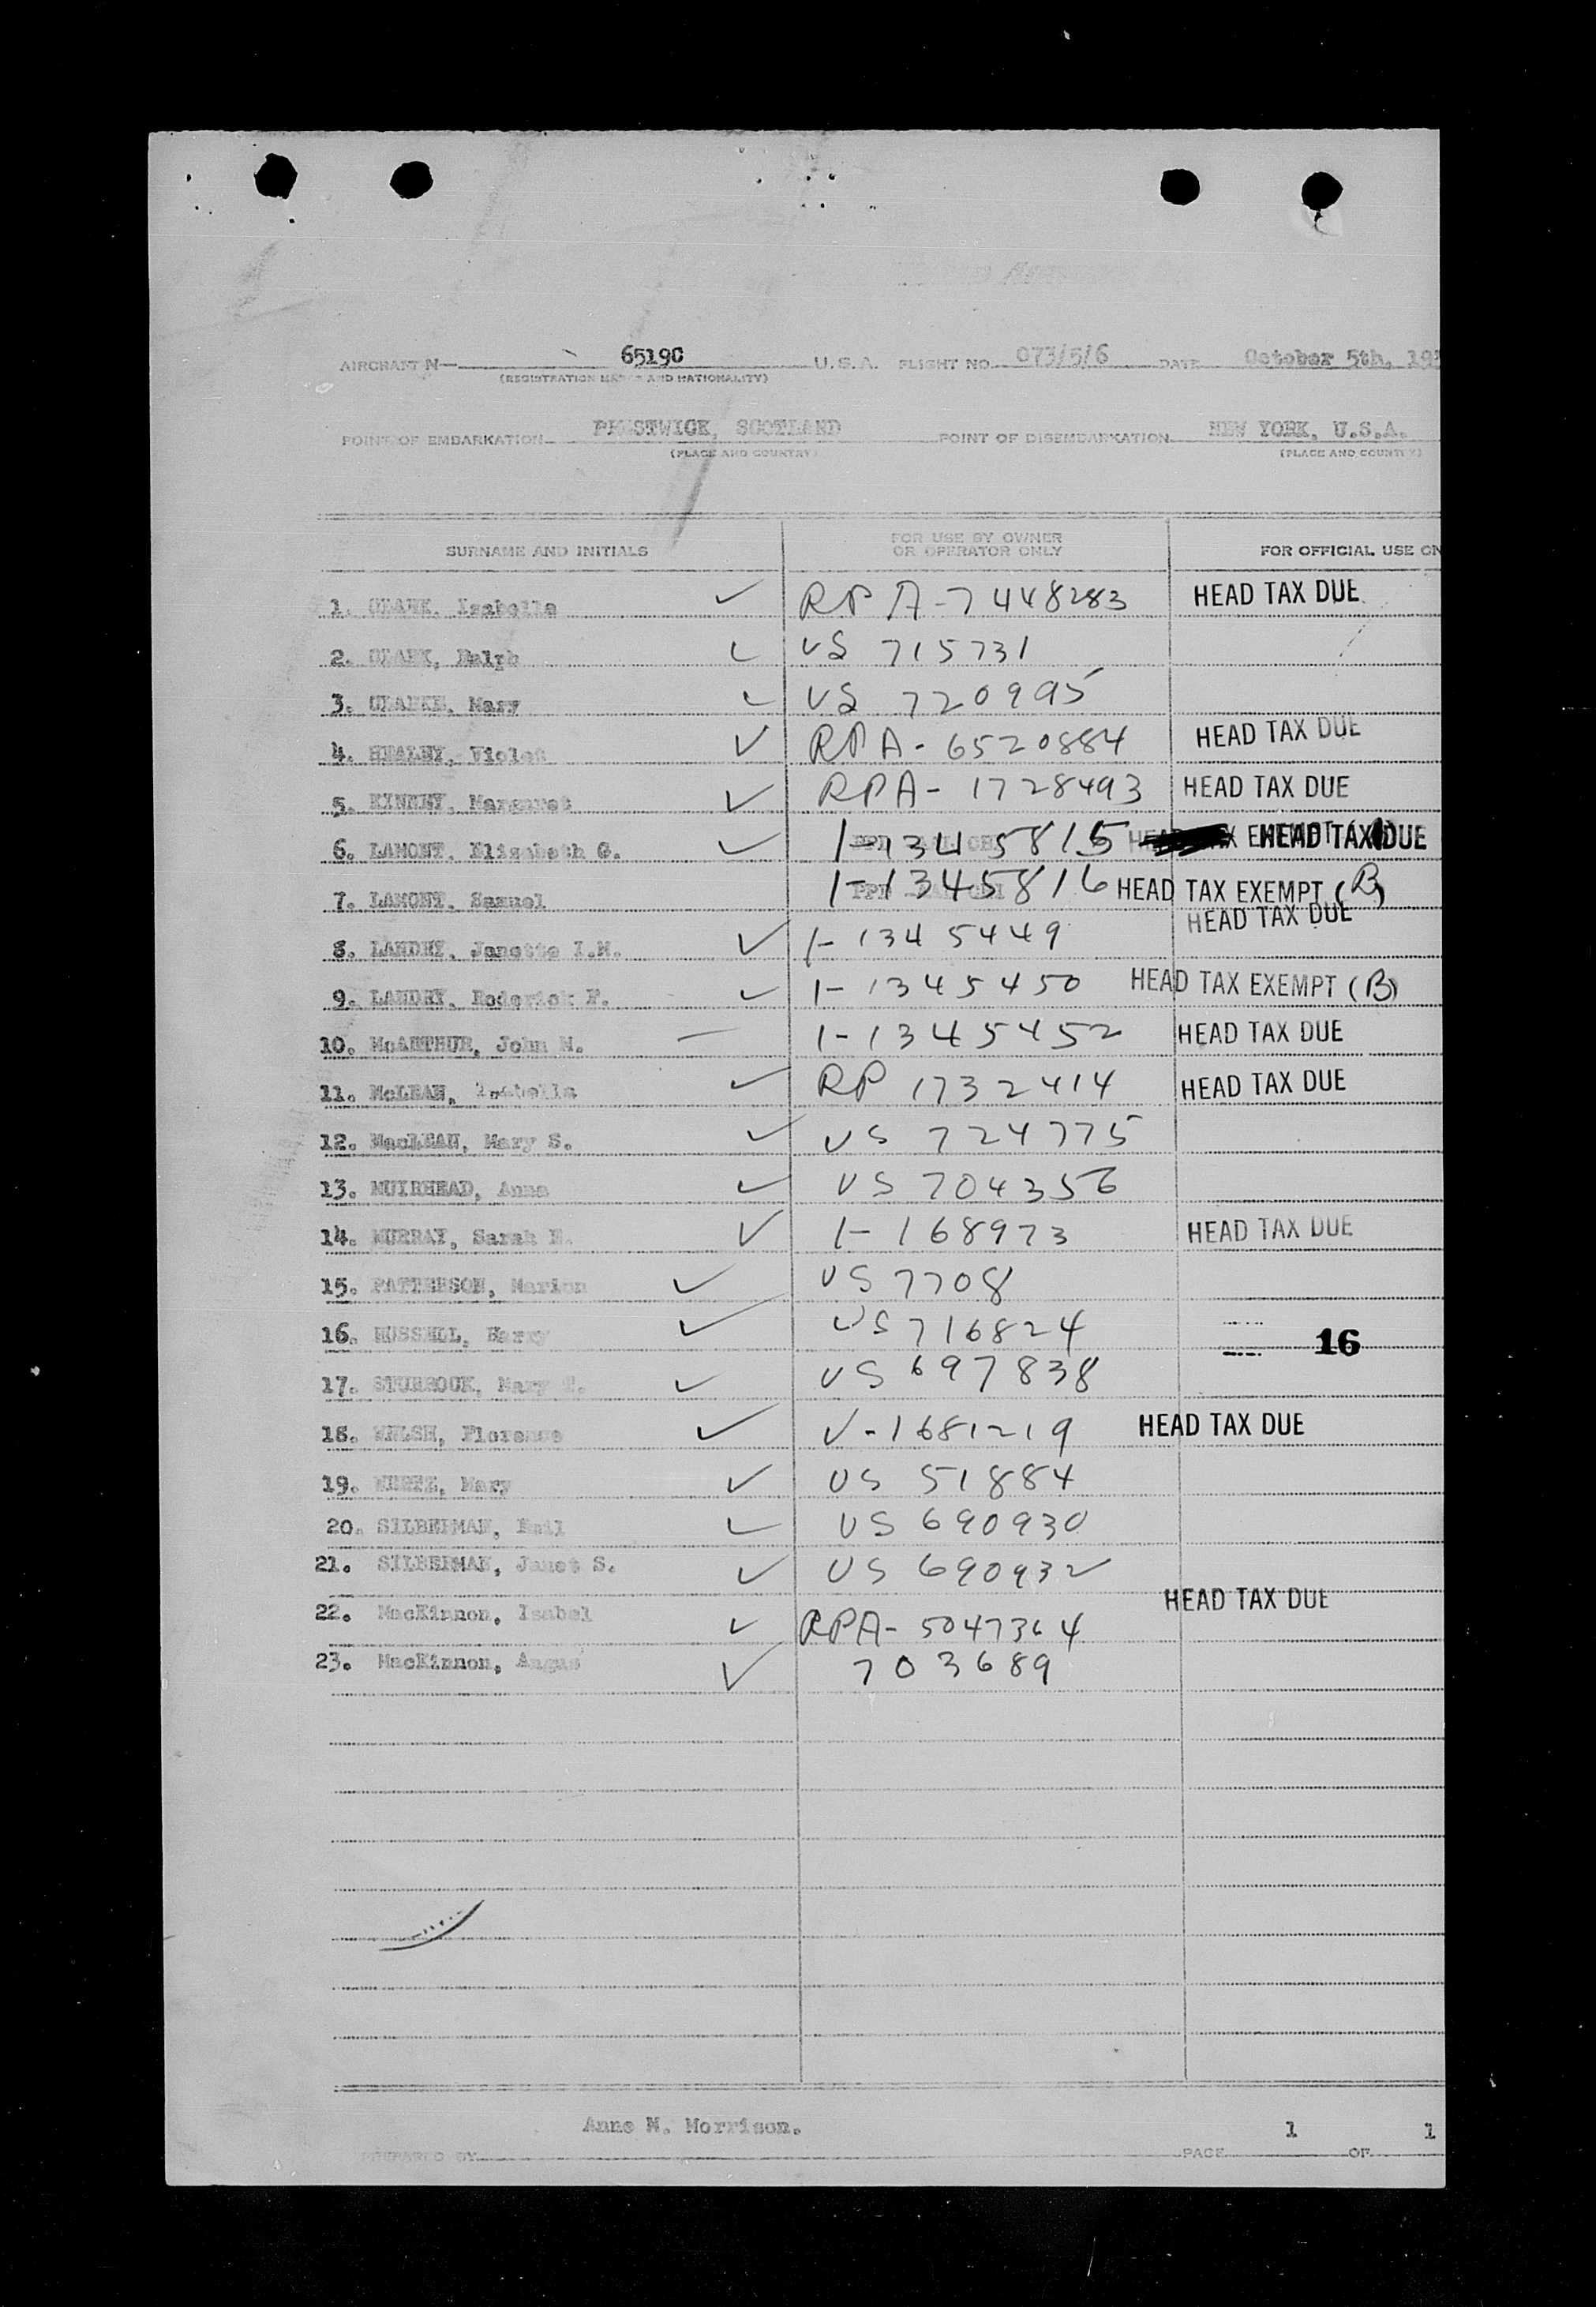 AIRCRAFT N— 6519C U.S.A. FLIGHT NO. 073/5/6 DATE October 5th, 195
(REGISTRATION MARKS AND NATIONALITY)
POINT OF EMBARKATION PRESTWICK, SCOTLAND POINT OF DISEMBARKATION NEW YORK, U.S.A.
(PLACE AND COUNTRY) (PLACE AND COUNTRY)
SURNAME AND INITIALS FOR USE BY OWNER OR OPERATOR ONLY FOR OFFICIAL USE ON
1. CLARK, Isabella ✓ RP A-7448283 HEAD TAX DUE
2. CLARK, Ralph ✓ US 715731
3. CLARKE, Mary ✓ US 720995
4. HEALEY, Violet ✓ RPA-6520884 HEAD TAX DUE
5. KINERY, Margaret ✓ RPA-1728493 HEAD TAX DUE
6. LAMONT, Elizabeth G. ✓ 1-1345815 HEAD TAX DUE
7. LAMONT, Samuel 1-1345816 HEAD TAX EXEMPT (B)
8. LANDRY, Janette I.M. ✓ 1-1345449 HEAD TAX DUE
9. LANDRY, Roderick F. ✓ 1-1345450 HEAD TAX EXEMPT (B)
10. McARTHUR, John M. — 1-1345452 HEAD TAX DUE
11. McLEAN, Isabella ✓ RP 1732414 HEAD TAX DUE
12. MacLEAN, Mary S. ✓ US 724775
13. MUIRHEAD, Anna ✓ US 704356
14. MURRAY, Sarah ✓ 1-168973 HEAD TAX DUE
15. PATTERSON, Marion ✓ US 7708
16. RUSSELL, Harry ✓ US 716824 16
17. STURROCK, Mary ✓ US 697838
18. WELSH, Florence ✓ V-1681219 HEAD TAX DUE
19. Mary ✓ US 51884
20. SILBERMAN, Emil ✓ US 690930
21. SILBERMAN, Janet S. ✓ US 690932
22. MacKinnon, Isabel ✓ RPA-5047364 HEAD TAX DUE
23. MacKinnon, Angus ✓ 703689
PREPARED BY Anne M. Morrison. PAGE 1 OF 1